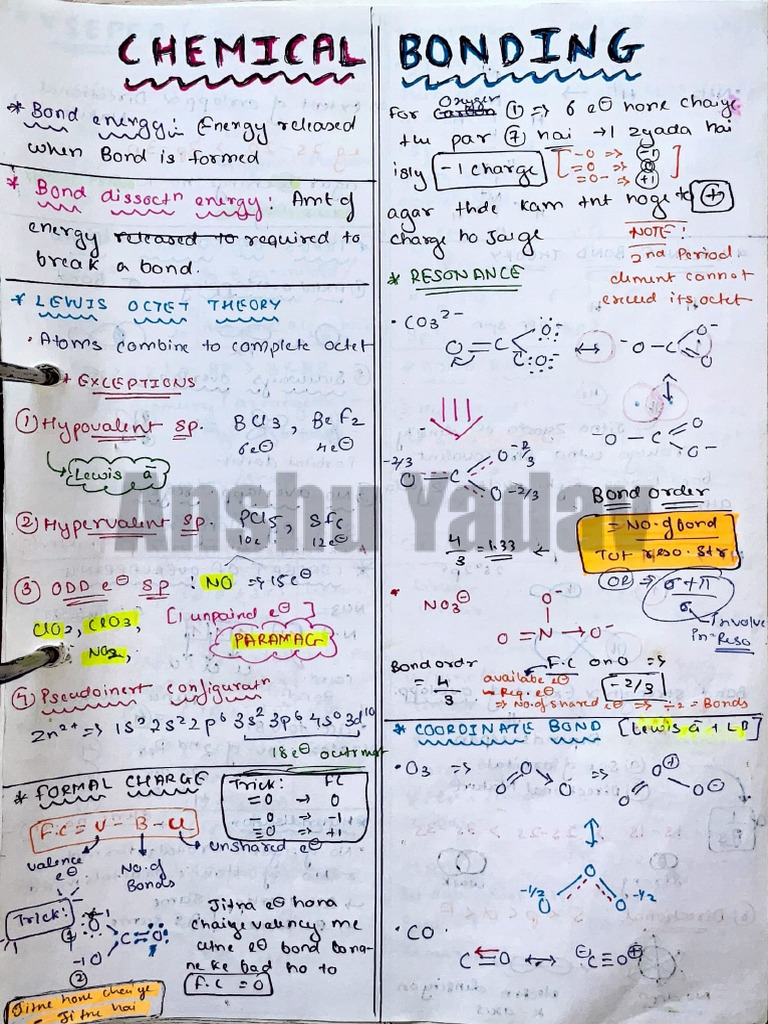 CHEMICAL BONDING
* Bond energy: Energy released
when Bond is formed
* Bond dissoctn energy: Amt of
energy released to required to
break a bond.
* LEWIS OCTET THEORY
• Atoms combine to complete octet
* EXCEPTIONS
① Hypovalent sp. BCl3, BeF2
6e⊖ 4e⊖
Lewis ā
② Hypervalent sp. PCl5, SF6
10e⊖ 12e⊖
③ ODD e⊖ sp : NO => 15e⊖
ClO2, ClO3, [1 unpaired e⊖]
NO2, PARAMAG
④ Pseudoinert configuratn
Zn2+ => 1s2 2s2 2p6 3s2 3p6 4s0 3d10
18e⊖ outrmst
* FORMAL CHARGE
Trick: FC
=O → 0
-O => -1
≡O => +1
F.C = V - B - U
valence e⊖
No. of Bonds
unshared e⊖
Trick:
①
O
C=O:
-1O
②
Jitna e⊖ hona
chaiye valency me
utne e⊖ bond bona-
ne ke bad ho to
F.C = 0
Jitne hone chaiye
- Jitne hai
For Oxygen ① => 6 e⊖ hone chaiye
the par ⑦ hai → 1 zyada hai
isly -1 charge
[-O => -1
=O => 0
≡O- => +1]
agar thde kam tnt hoge to +
charge ho Jaige
NOTE:
2nd Period
element cannot
exceed its octet
* RESONANCE
• CO3 2-
O=C O:- O:⊖ ↔ -O-C O- O
-O-C O O-
-2/3 O C O -2/3 O -2/3
Bond order
= No. of bond
Tot reso. str
4/3 = 1.33
OR => σ+π
σ → involve
in Reso
• NO3⊖
O-
O=N→O-
Bond ordr
= 4/3
F.C on O =>
-2/3
availabe e⊖
- Req. e⊖
=> No. of shared e⊖ => ÷2 = Bonds
* COORDINATE BOND [Lewis ā + LB]
• O3 => O O O => O⊕ O O⊖
-1/2 O O O -1/2
• CO
C≡O ↔ ⊖C≡O⊕
Anshu Yadav